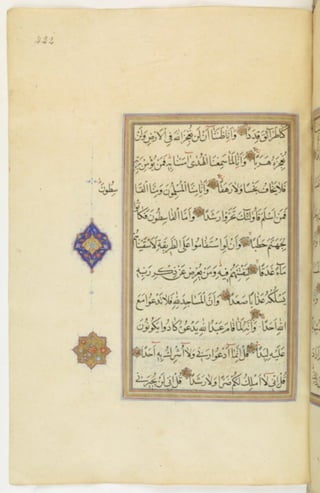 كنا طرائق قددا وأنا ظننا أن لن نعجز الله في الأرض ولن
نعجزه هربا وأنا لما سمعنا الهدى آمنا به فمن يؤمن بربه
فلا يخاف بخسا ولا رهقا وأنا منا المسلمون ومنا القا
سطون
فمن أسلم فأولئك تحروا رشدا وأما القاسطون فكانوا
لجهنم حطبا وأن لو استقاموا على الطريقة لأسقيناهم
ماء غدقا لنفتنهم فيه ومن يعرض عن ذكر ربه
يسلكه عذابا صعدا وأن المساجد لله فلا تدعوا مع
الله أحدا وأنه لما قام عبد الله يدعوه كادوا يكونون
عليه لبدا قل إنما أدعوا ربي ولا أشرك به أحدا
قل إني لا أملك لكم ضرا ولا رشدا قل إني لن يجيرني